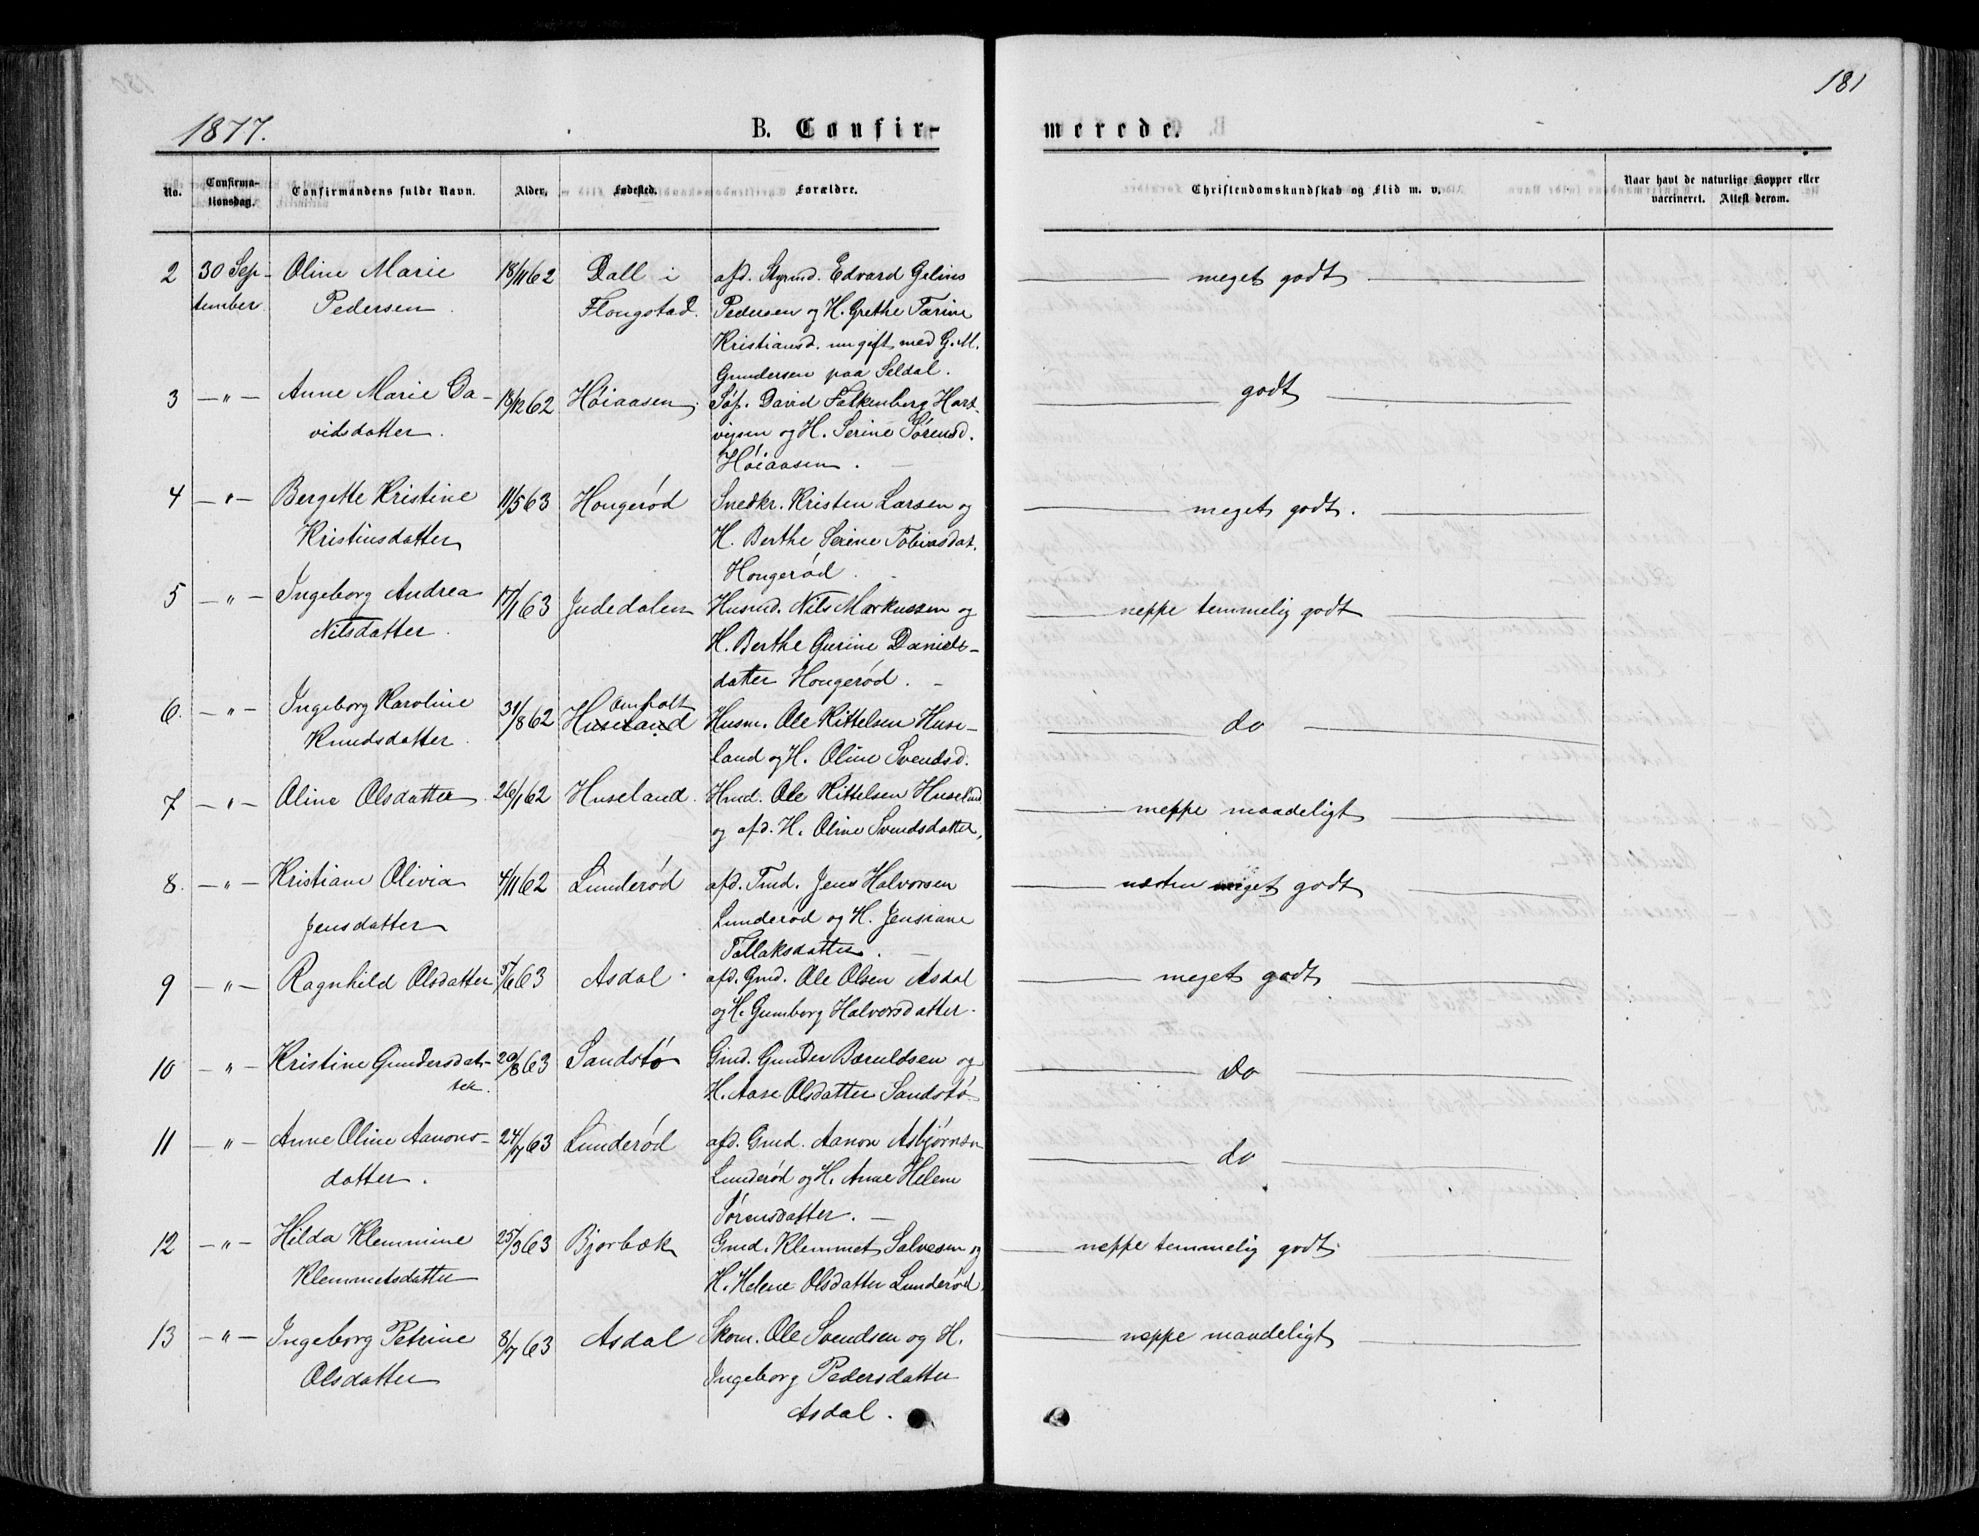 181
1877. B. Confirmerede.
No. Confirmationsdag. Confirmandens fulde Navn. Alder. Fødested. Forældre. Christendomskundskab og Flid m. v. Naar havt de naturlige Kopper eller vaccineret. Attest derom.
2 30 Sep- Oline Marie 18/11 62 Dall i afd. Styrmd. Edvard Gelius meget godt
tember Pedersen Flougstad. Pedersen og H. Grethe Tarine
Kristiansd. nu gift med G. M.
Gundersen paa Seldal.
3 — " — Anne Marie Da- 18/12 62 Höiaasen Søf. David Falkenberg Hart- godt
vidsdatter. vigsen og H. Serine Sørensd.
Höiaasen.
4 — " — Bergette Kristine 11/5 63 Hougerød Snedkr. Kristen Larsen og meget godt.
Kristensdatter H. Berthe Serine Tobiasdat.
Hougerød.
5 — " — Ingeborg Andrea 17/1 63 Judedalen Husmd. Nils Markussen og neppe temmelig godt
Nilsdatter. H. Berthe Gurine Daniels-
datter Hougerød.
6. — " — Ingeborg Karoline 31/8 62 Omholt
Huseland Husm. Ole Kittelsen Huse- do
Knudsdatter. land og H. Oline Svendsd.
7 — " — Oline Olsdatter 26/1 62 Huseland. Hmd. Ole Kittelsen Huseland neppe maadeligt
og afd. H. Oline Svendsdatter.
8. — " — Kristiane Olivia 4/11 62 Lunderød afd. Tmd. Jens Halvorsen næsten meget godt
Jensdatter Lunderød og H. Jensiane
Tallaksdatter.
9 — " — Ragnhild Olsdatter 5/6 63 Asdal. afd. Gmd. Ole Olsen Asdal meget godt
og H. Gumborg Halvorsdatter.
10 — " — Kristine Gundersdat- 20/8 63 Sandstø Gmd. Gunder Bæruldsen og Do
ter. H. Aase Olsdatter Sandstø
11 — " — Anne Oline Aanons- 24/7 63 Lunderød afd. Gmd. Aanon Asbjørnsen do
datter. Lunderød og H. Anne Helene
Sørensdatter.
12 — " — Hilda Klemmine 25/3 63 Bjorbæk Gmd. Klemmet Salvesen og neppe temmelig godt
Klemmetsdatter H. Helene Olsdatter Lunderød.
13 — " — Ingeborg Petrine 8/7 63 Asdal Skom. Ole Svendsen og H. neppe maadeligt
Olsdatter Ingeborg Pedersdatter
Asdal.